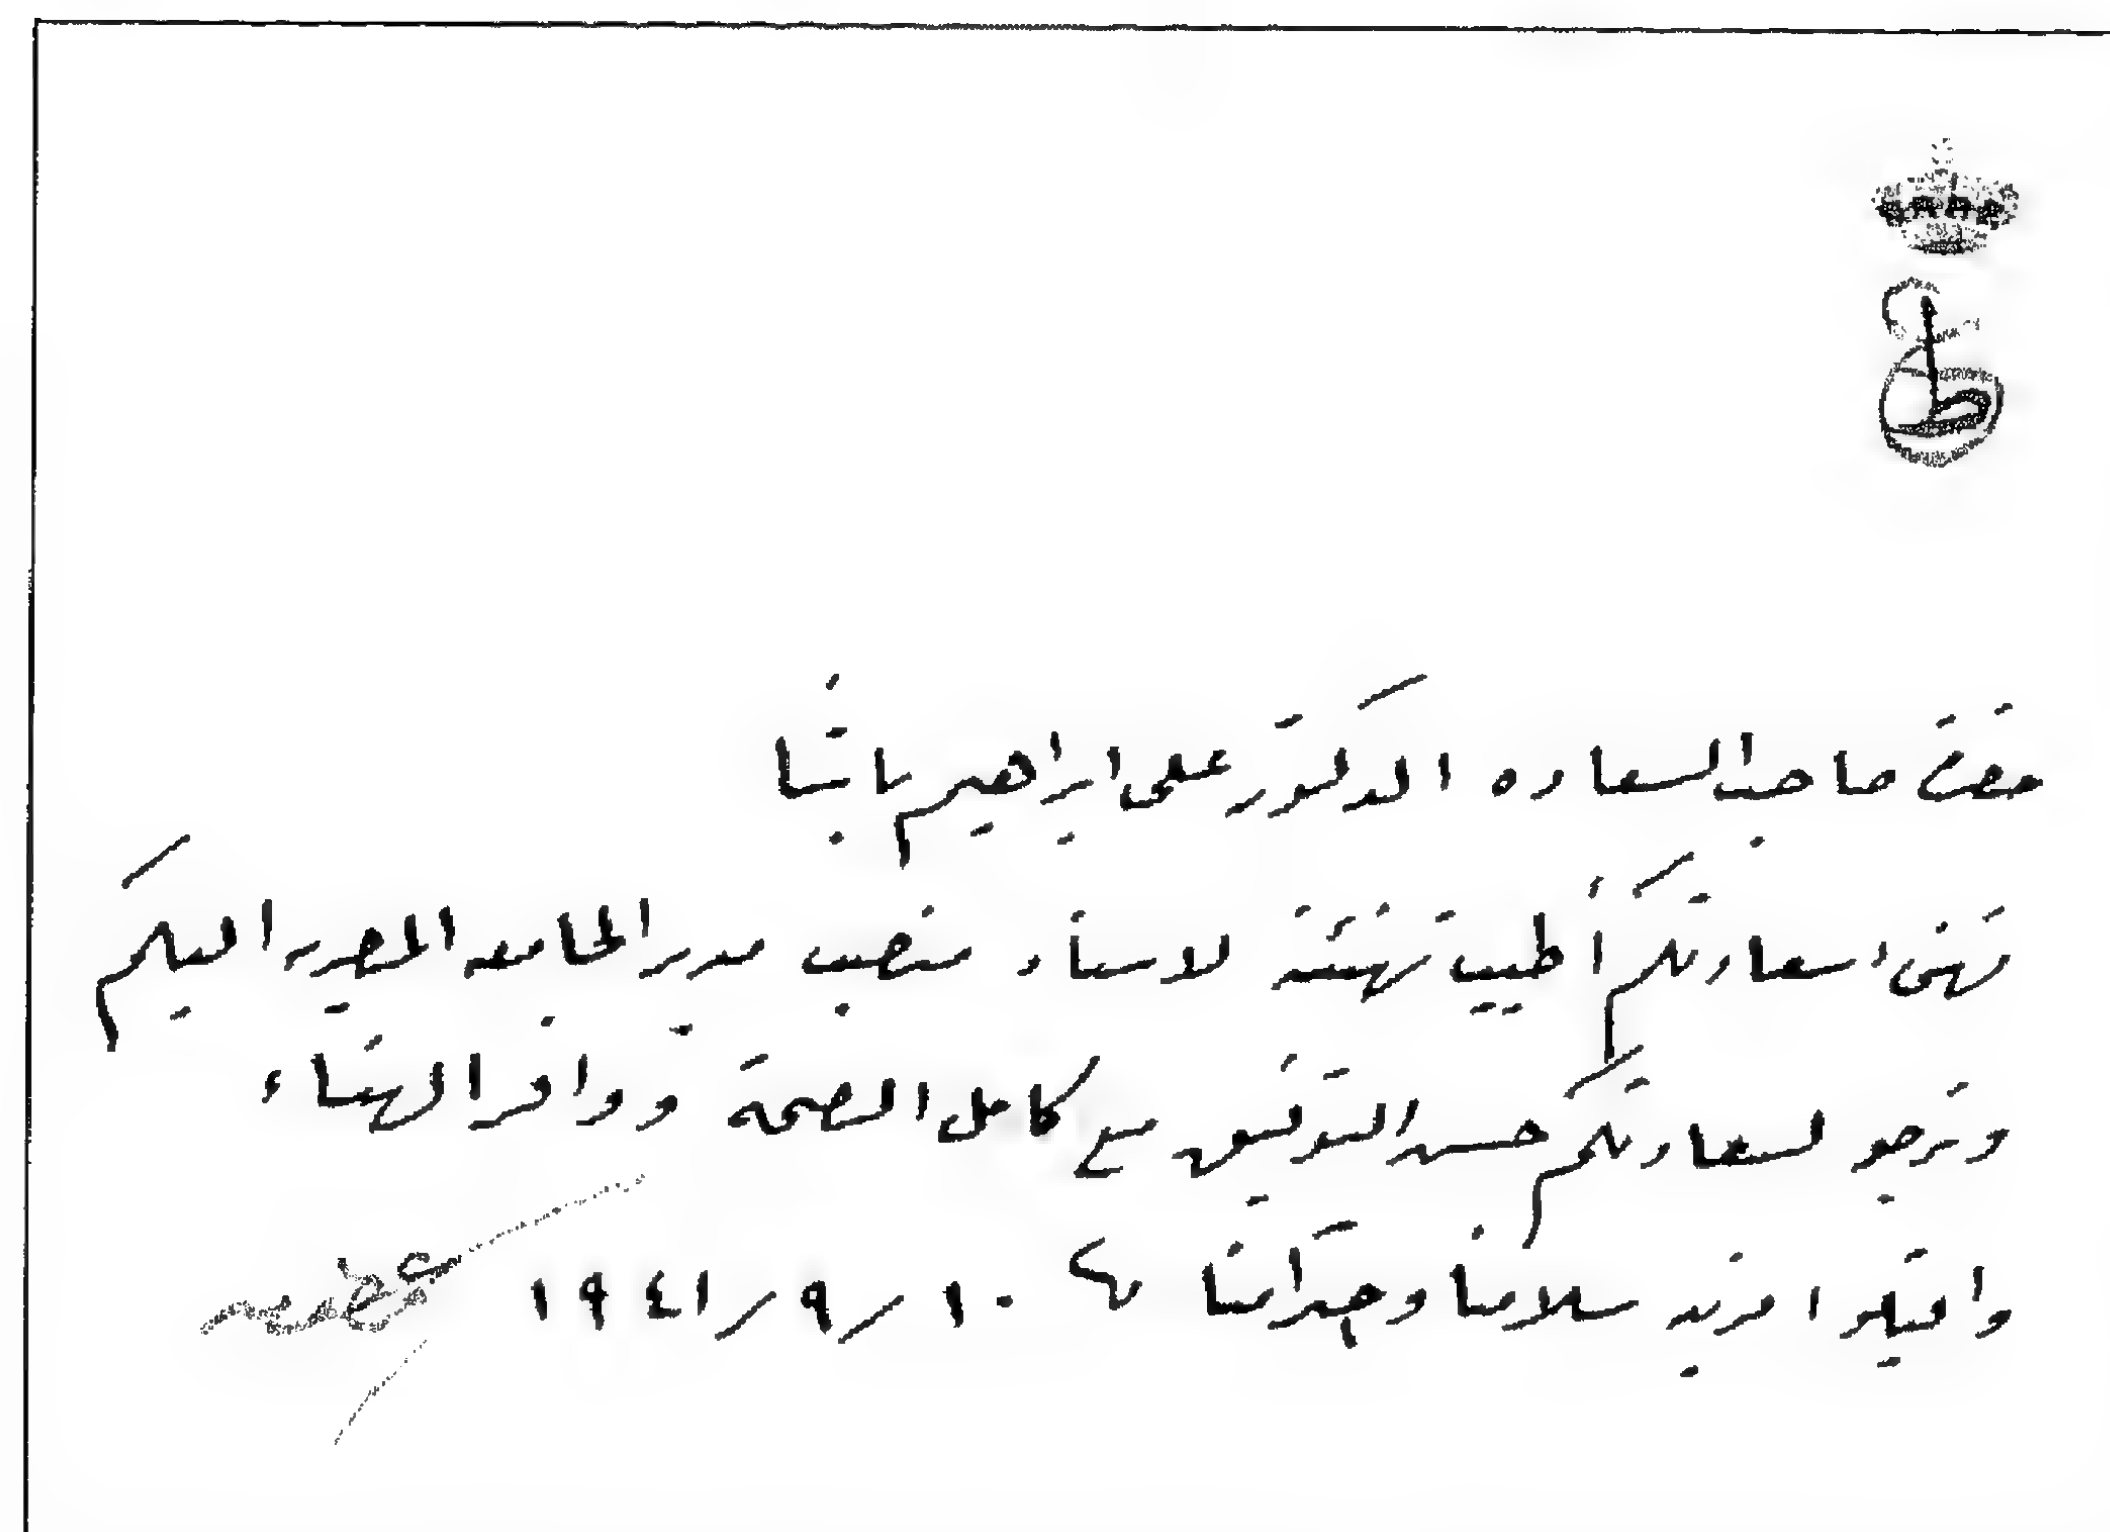 حضرة صاحب السعاده الدكتور على ابراهيم باشا
نهنىء سعادتكم أطيب تهنئة لاسناد منصب مدير الجامعه المصريه اليكم
ونرجو لسعادتكم حسن التوفيق مع كامل الصحة ووافر الهناء
واقبلوا مزيد سلامنا واحترامنا ١٠/٩/١٩٤١